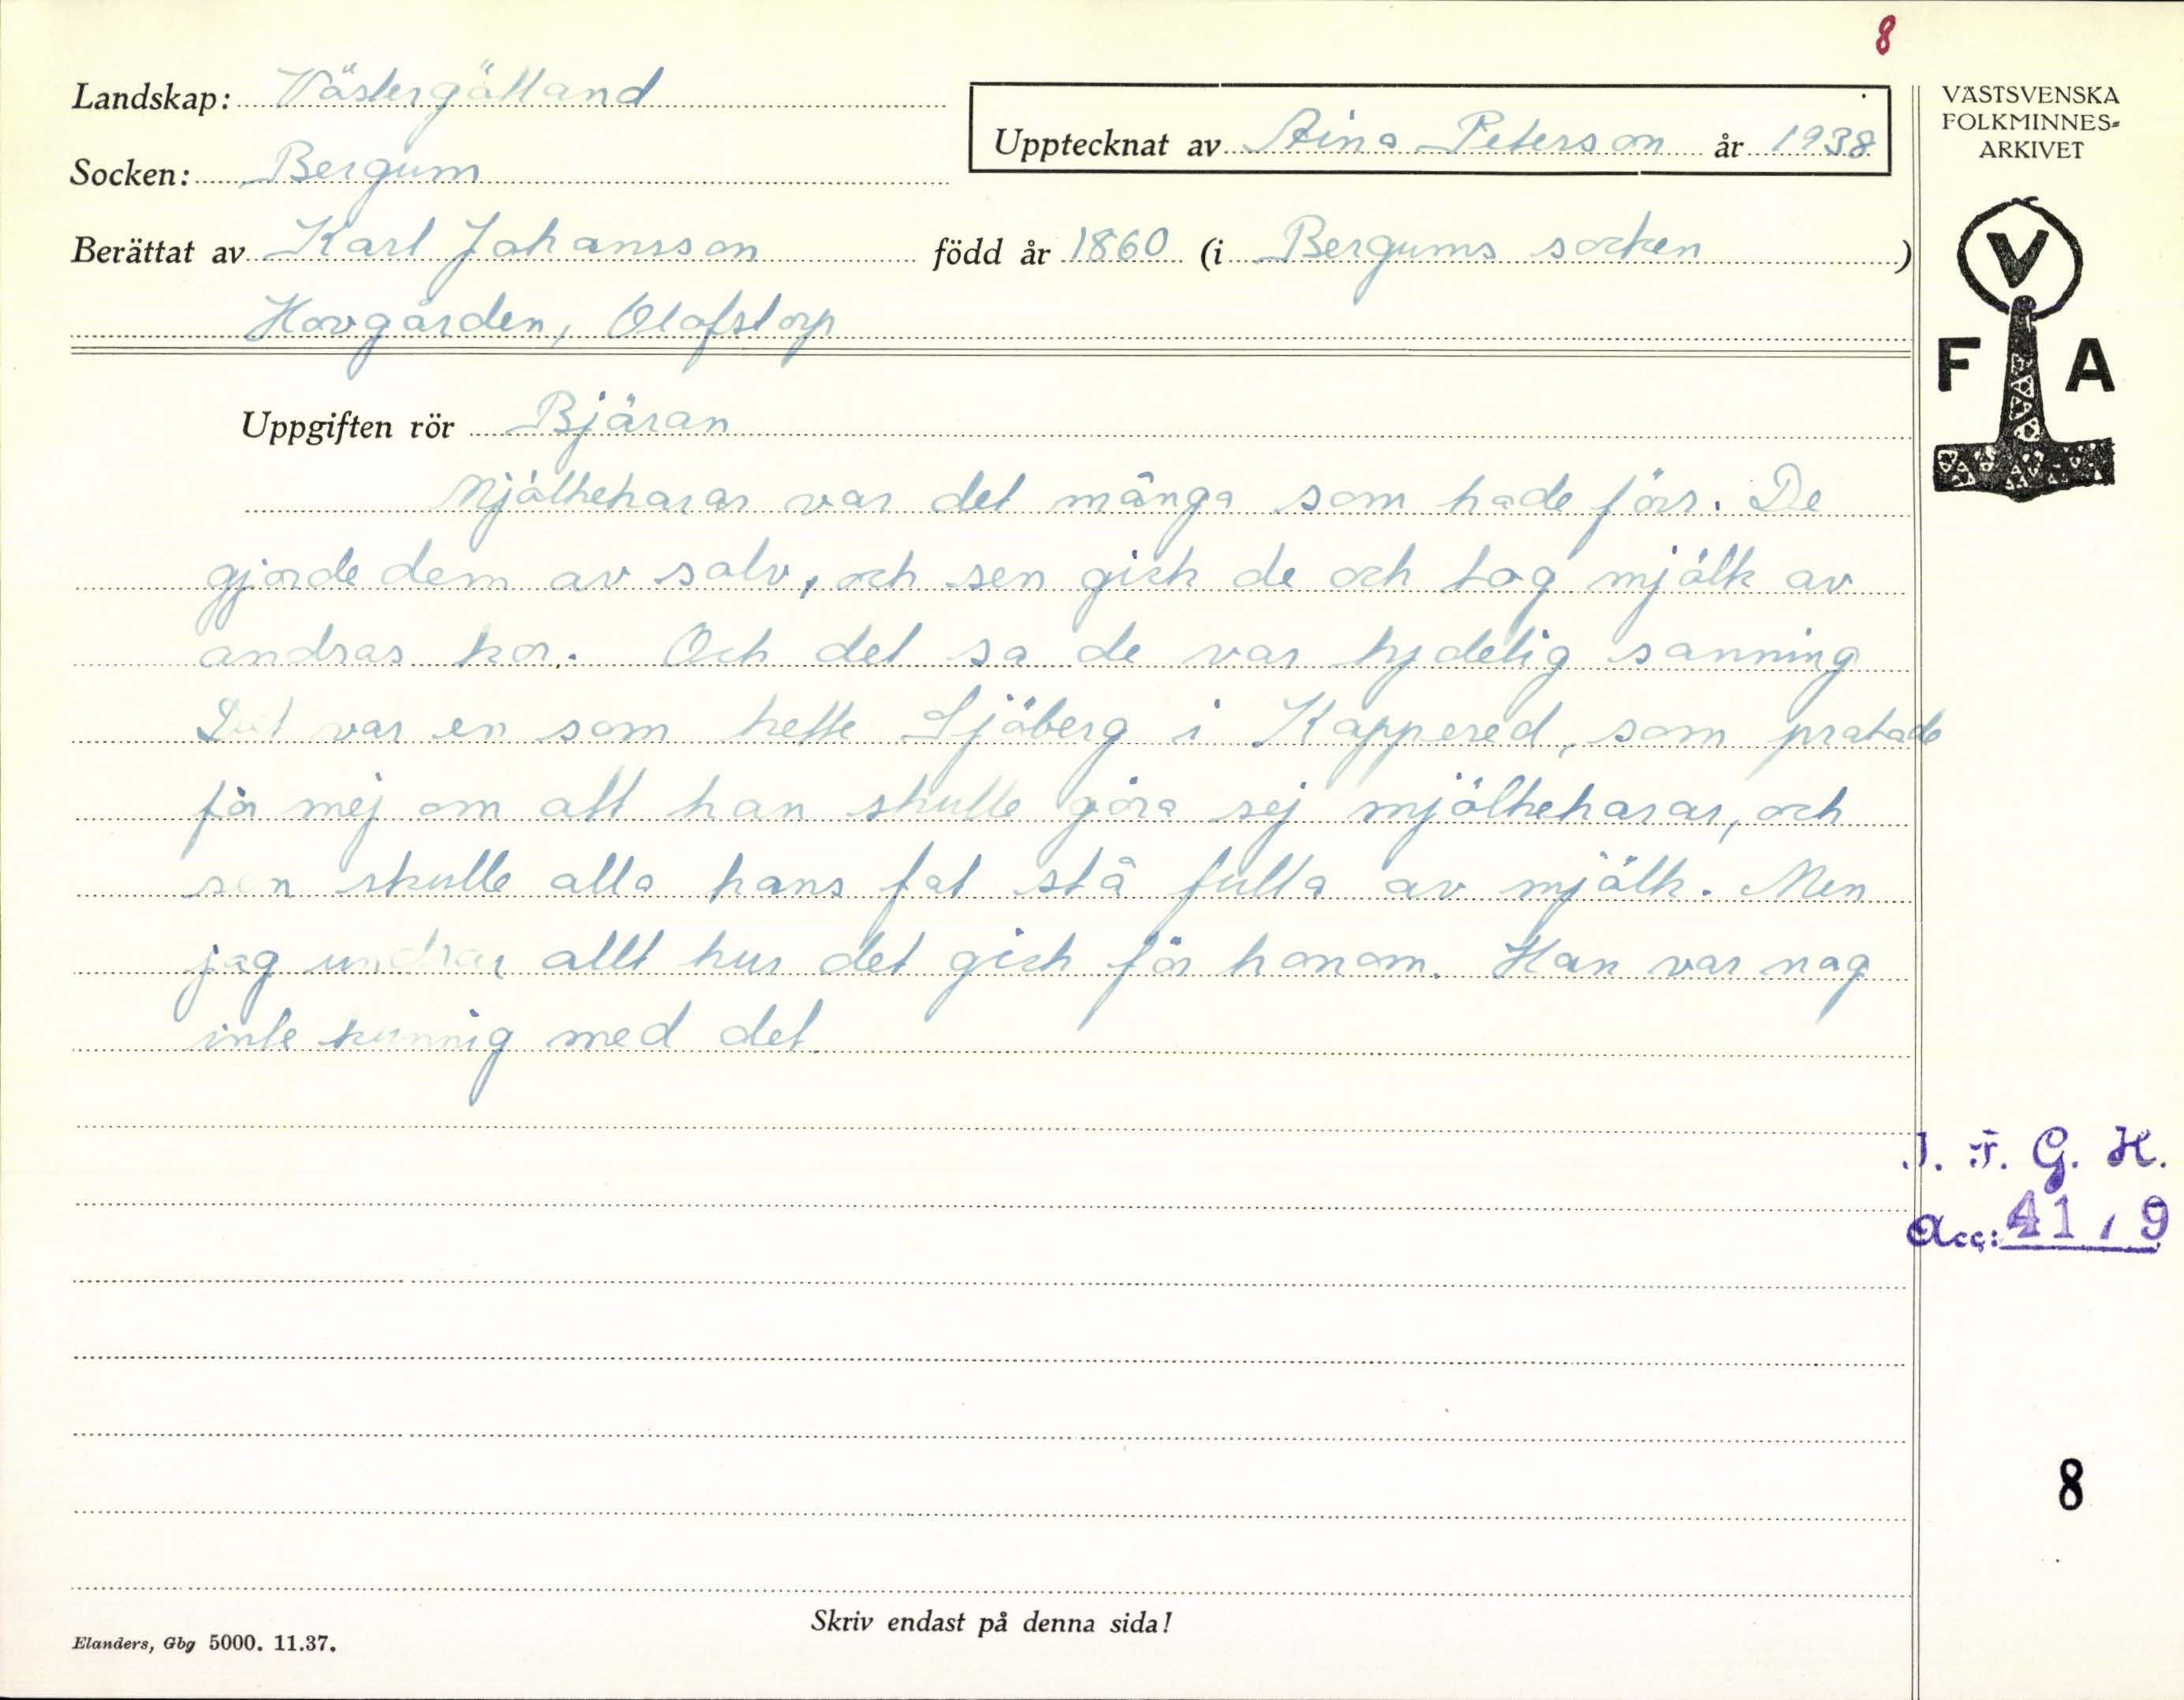 8
Landskap: Västergötland
Socken: Bergum
Upptecknat av Aina Peterson år 1938
Berättat av Karl Johansson född år 1860 (i Bergums socken)
Hovgården, Olofstorp
Uppgiften rör Bjäran
Mjölkeharar var det många som hade förr. De
gjorde dem av salv, och sen gick de och tog mjölk av
andras kor. Och det sa de var tydelig sanning
Det var en som hette Sjöberg i Kappered, som pratade
för mej om att han skulle göra sej mjölkeharar, och
sen skulle alla hans fat stå fulla av mjölk. Men
jag undrar allt hur det gick för honom. Han var nog
inte kunnig med det.
Elanders, Gbg 5000. 11.37.
Skriv endast på denna sida!
VÄSTSVENSKA
FOLKMINNES=
ARKIVET
V
F A
I. F. G. H.
Acc: 41, 9
8